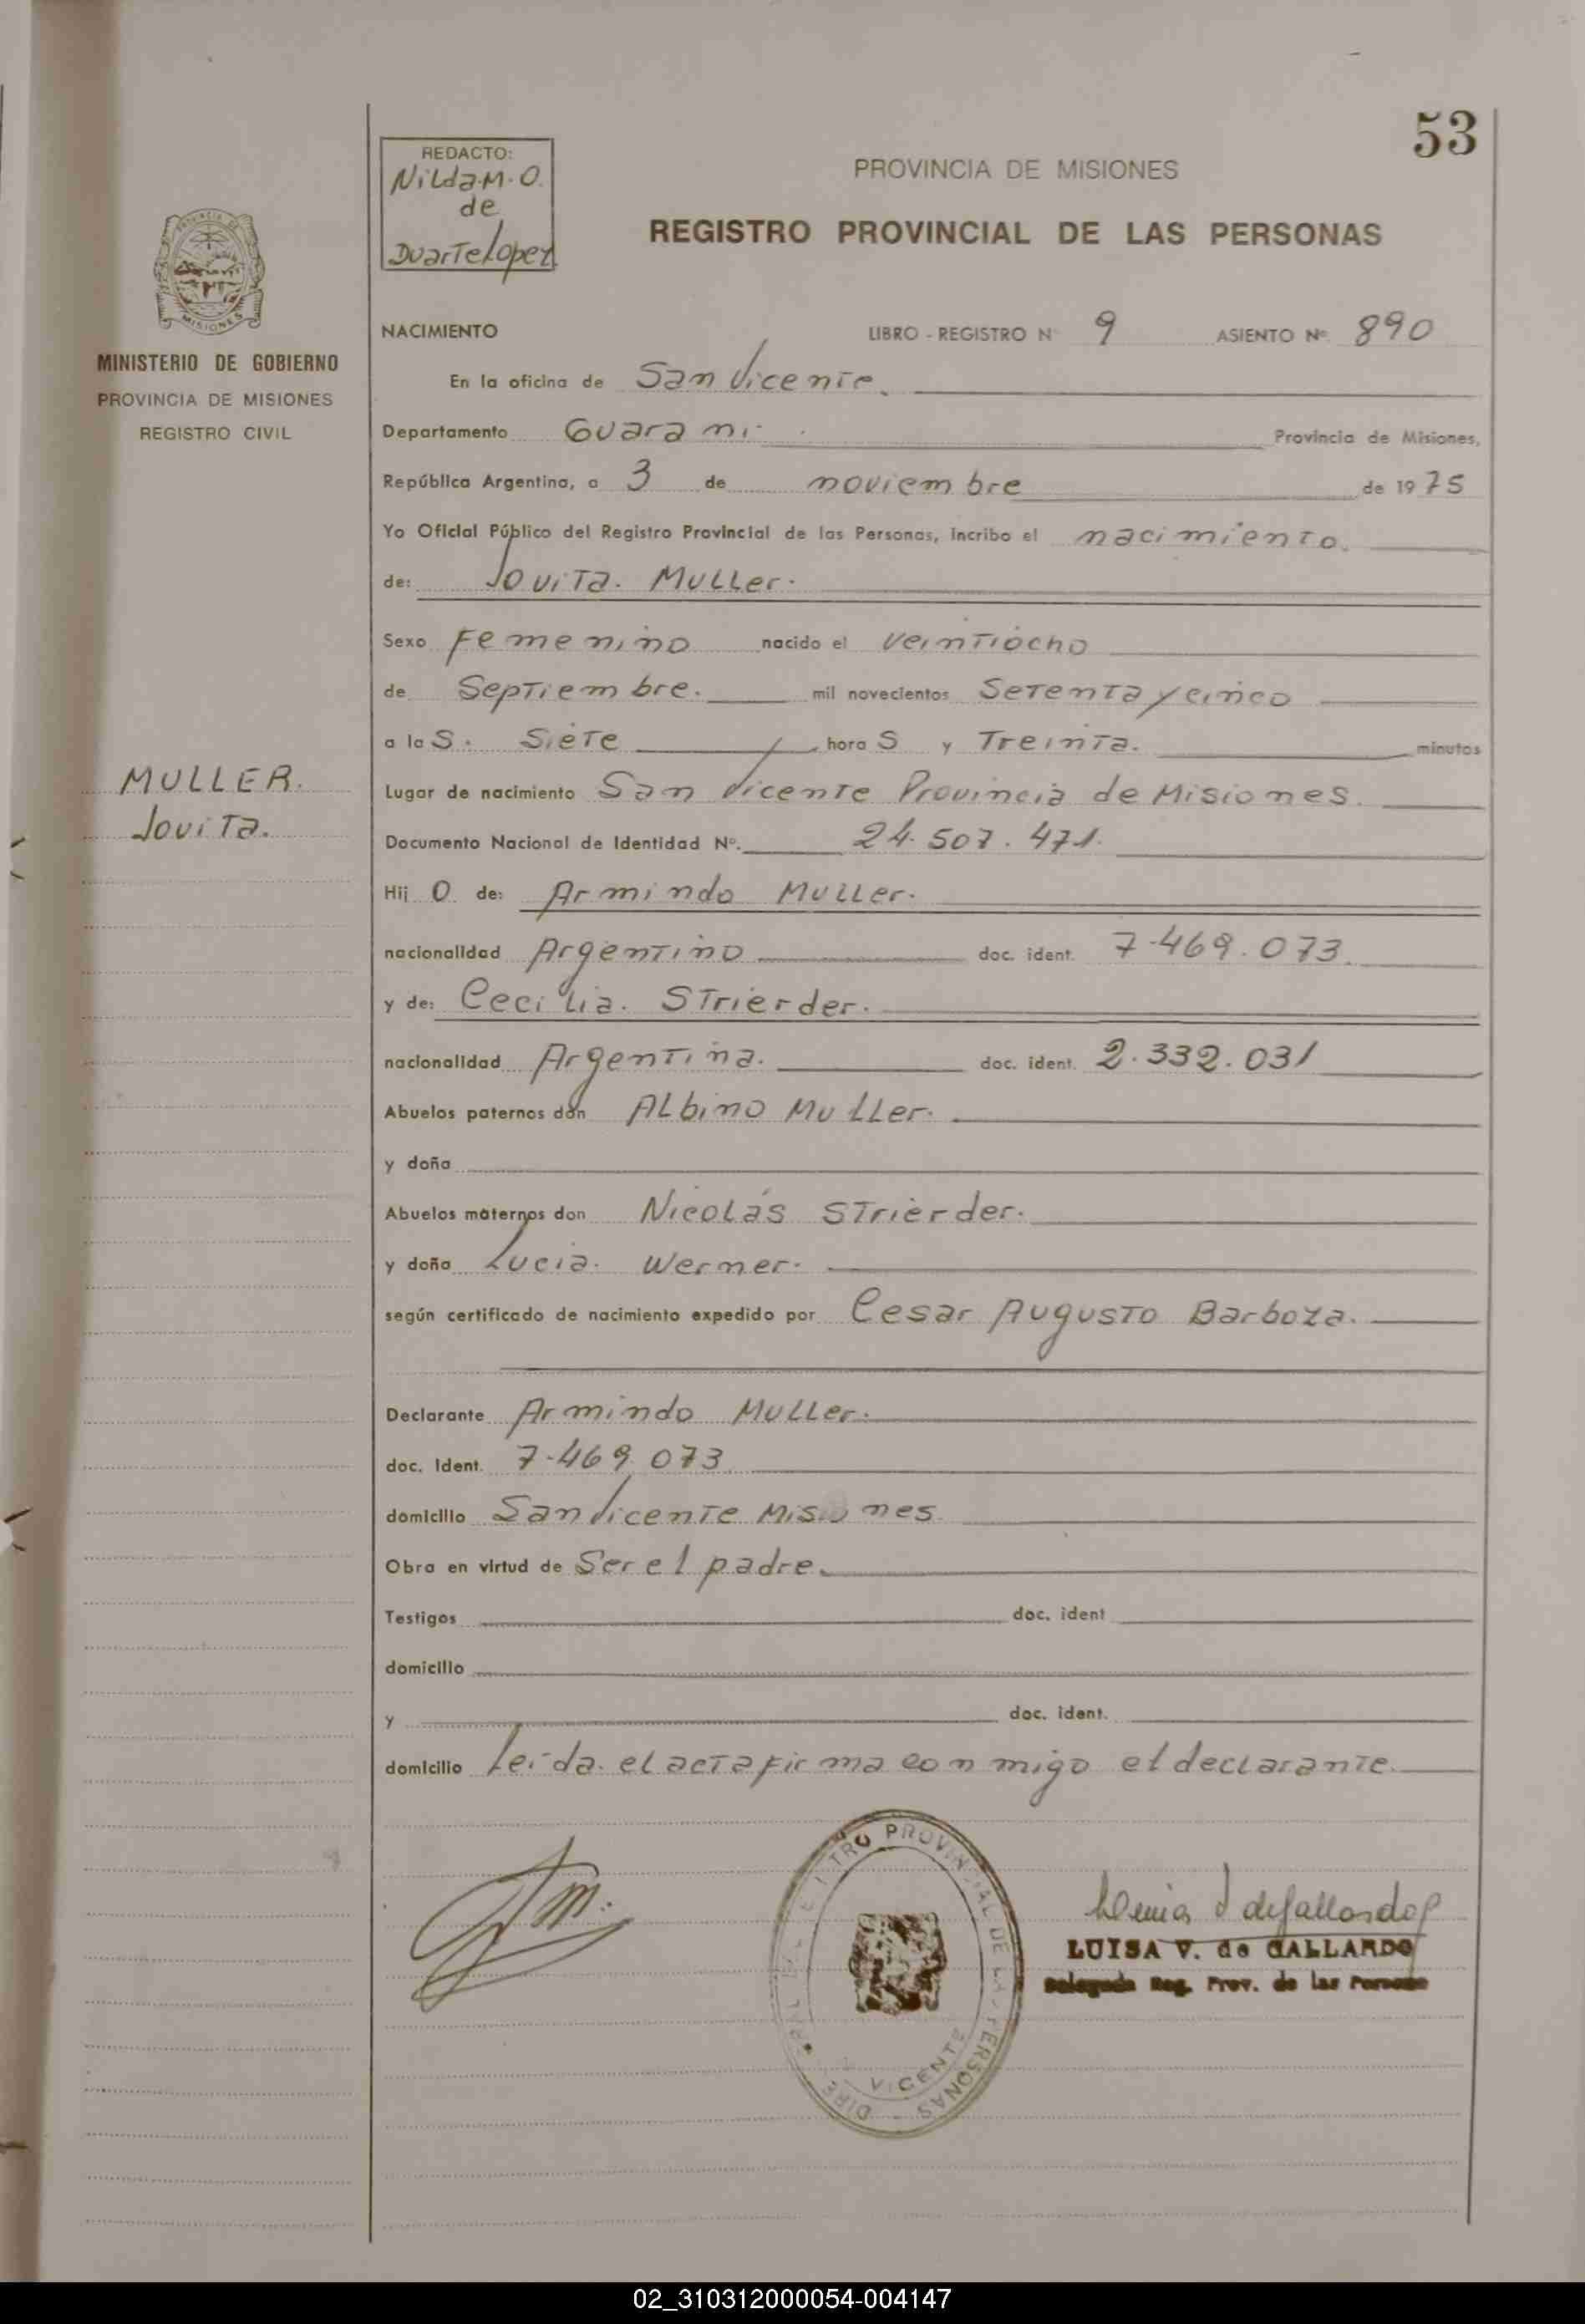 53
REDACTO:
Nilda.M.O.
de
Duarte Lopez
PROVINCIA DE MISIONES
REGISTRO PROVINCIAL DE LAS PERSONAS
PROVINCIA DE
MISIONES
MINISTERIO DE GOBIERNO
PROVINCIA DE MISIONES
REGISTRO CIVIL
NACIMIENTO LIBRO - REGISTRO N° 9 ASIENTO N° 890
En la oficina de San Vicente.
Departamento Guarani. Provincia de Misiones,
República Argentina, a 3 de noviembre de 1975
Yo Oficial Público del Registro Provincial de las Personas, incribo el nacimiento.
de: Jovita. Muller.
Sexo Femenino nacido el veintiocho
de Septiembre. mil novecientos Setenta y cinco
a las. Siete horas y Treinta. minutos
MULLER.
Jovita.
Lugar de nacimiento San Vicente Provincia de Misiones.
Documento Nacional de Identidad N°. 24.507.471.
Hij o de: Armindo Muller.
nacionalidad Argentino doc. ident. 7.469.073.
y de: Cecilia. Strierder.
nacionalidad Argentina. doc. ident. 2.332.031
Abuelos paternos don Albino Muller.
y doña
Abuelos maternos don Nicolás Strierder.
y doña Lucia. Werner.
según certificado de nacimiento expedido por Cesar Augusto Barboza.
Declarante Armindo Muller.
doc. Ident. 7.469.073
domicilio San Vicente Misiones
Obra en virtud de Ser el padre.
Testigos doc. ident
domicilio
y doc. ident.
domicilio Leida. el acta firma conmigo el declarante.
PROVINCIAL DE LAS PERSONAS
VICENTE
LUISA V. de GALLARDO
Delegada Reg. Prov. de las Personas
02_310312000054-004147